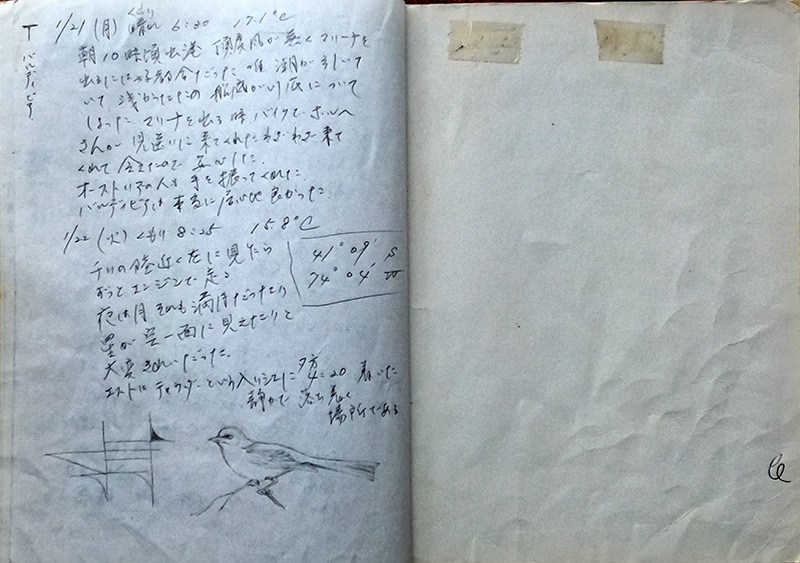 バルディビア
1/21 (月) くもり 晴レ 6:30 17.1°C
朝10時頃出港 丁度風が無くマリーナを
出るには好都合だった 唯 潮が引いて
いて 浅かったため 船底が川底について
しまった マリーナを出る時 バイクで ホルヘ
さんが 見送りに来てくれた わざわざ来て
くれて 会えたので 安心した.
オーストリアの人も 手を振ってくれた.
バルディビアは 本当に居心地良かった
1/22 (火) くもり 8:25 15.8°C
チリの陸近く左に見たら
ずっとエンジンで走る
41° 09' S
74° 04' W
夜は月 それも満月だったり
星が空一面に見えたりと
大変きれいだった.
という入り江に 夕方 4:20 着いた
静かで 落ち着く
場所である